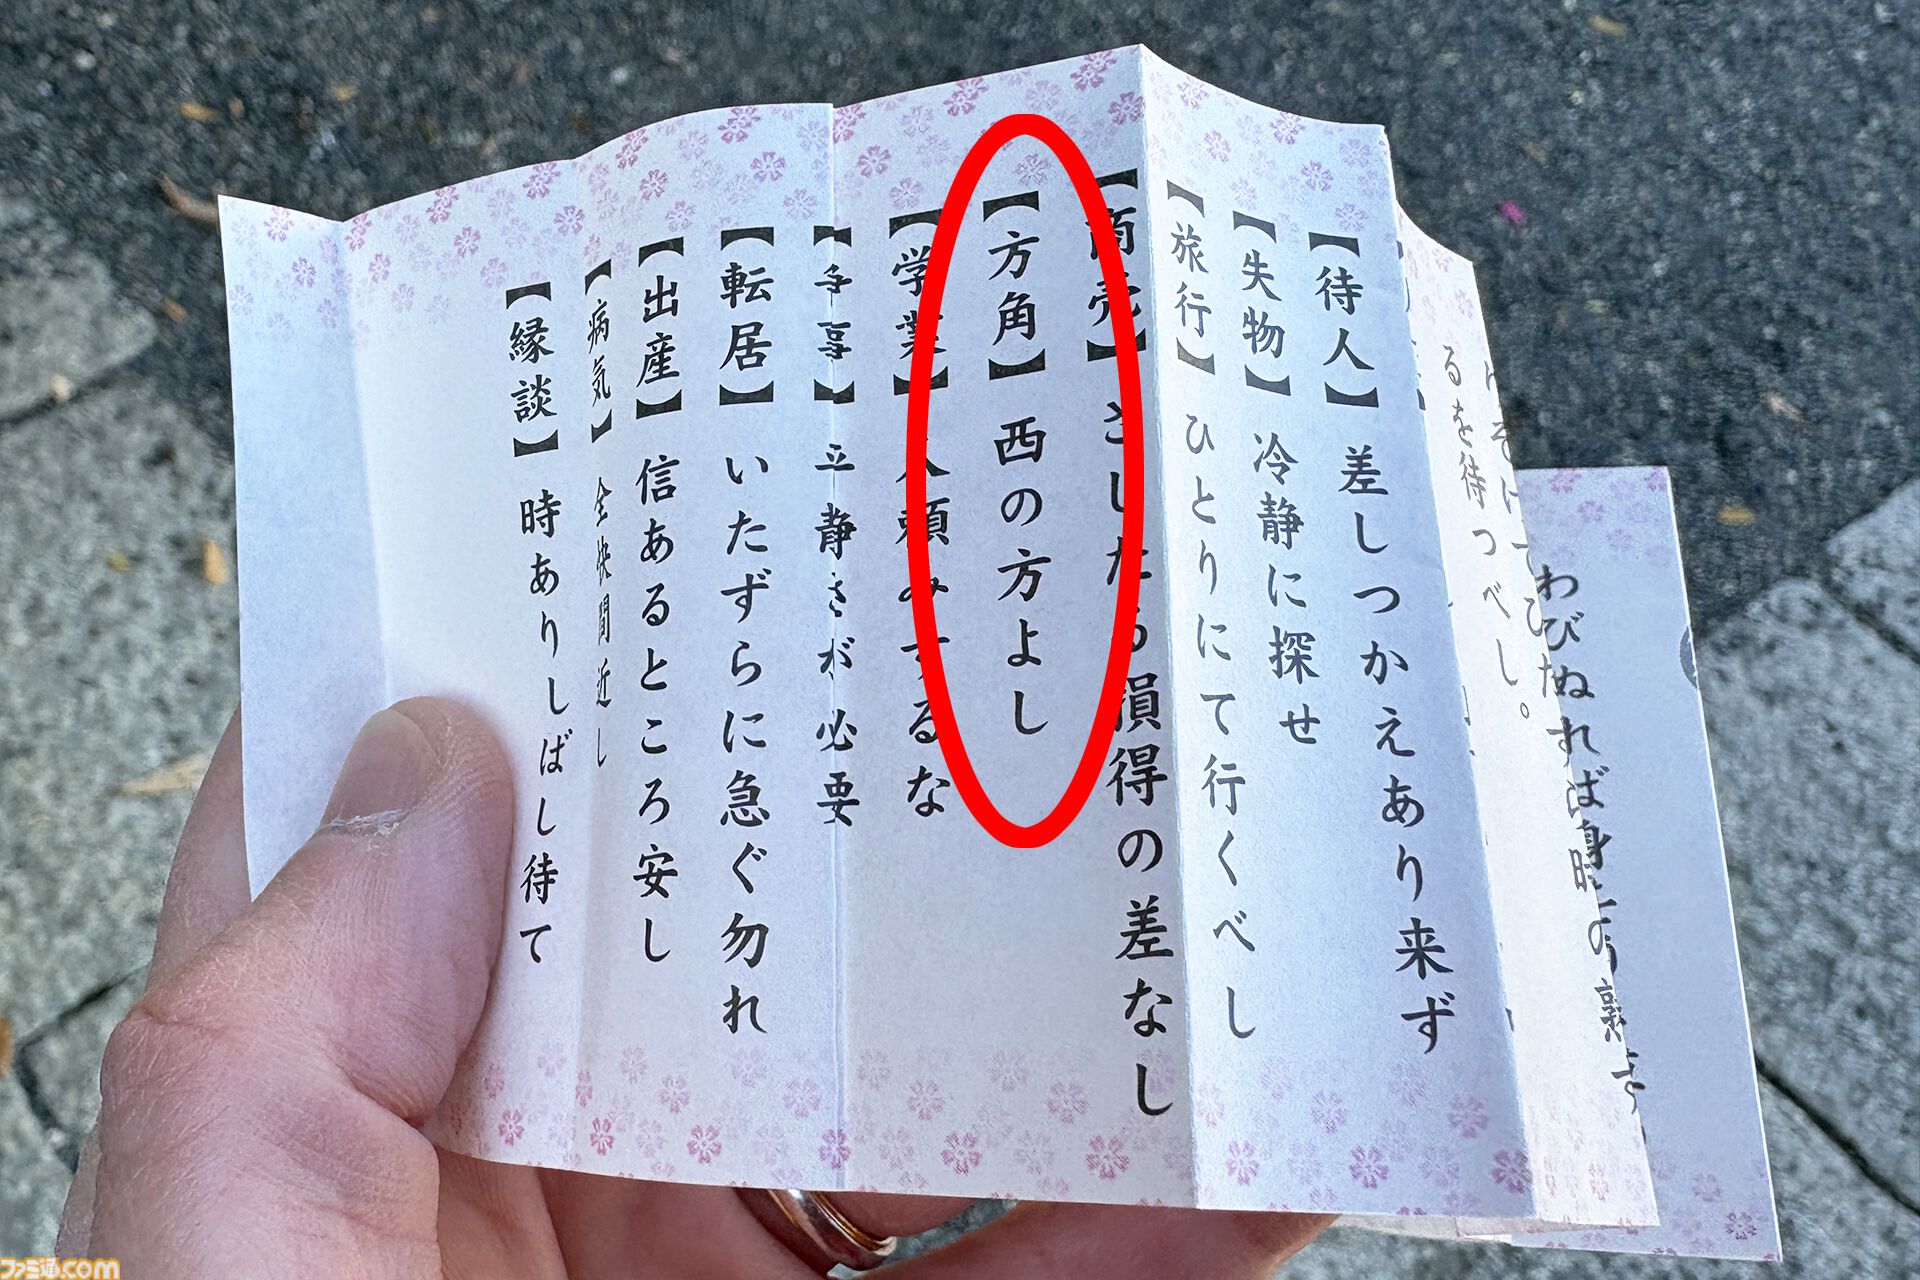 わびぬれば身
るを待つべし。
【待人】差しつかえあり来ず
【失物】冷静に探せ
【旅行】ひとりにて行くべし
【商売】さしたる損得の差なし
【方角】西の方よし
【学業】人頼みするな
【争事】立 静さが必要
【転居】いたずらに急ぐ勿れ
【出産】信あるところ安し
【病気】全快間近し
【縁談】時ありしばし待て
ファミ通.com